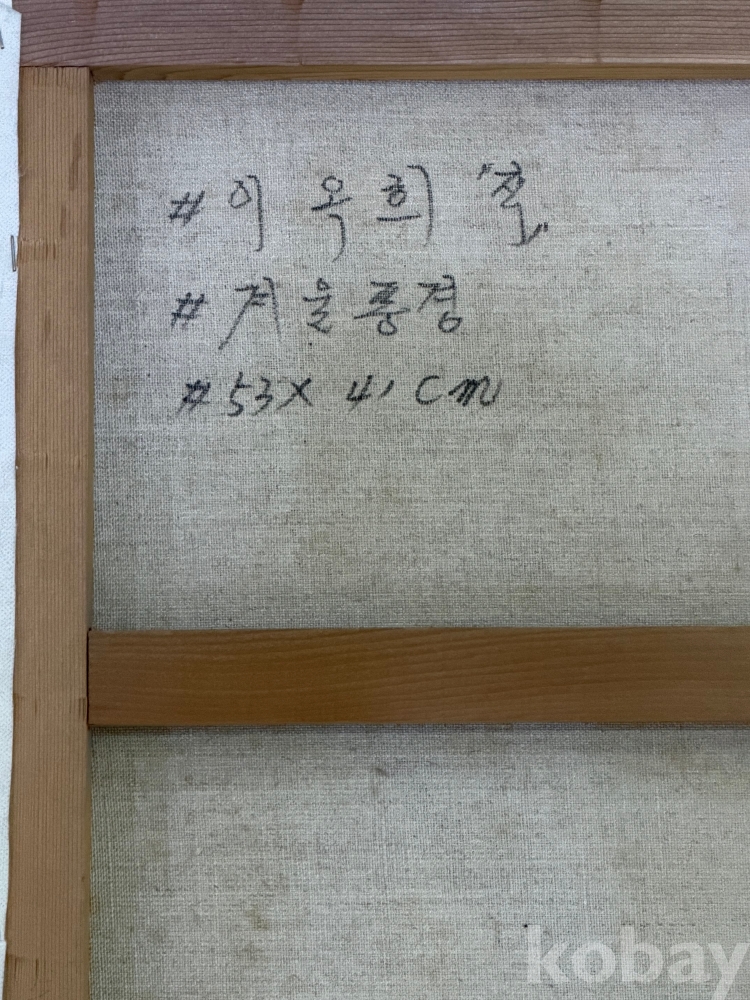 # 이 옥 희 "작"
# 겨울풍경
# 53 x 41 cm
kobay